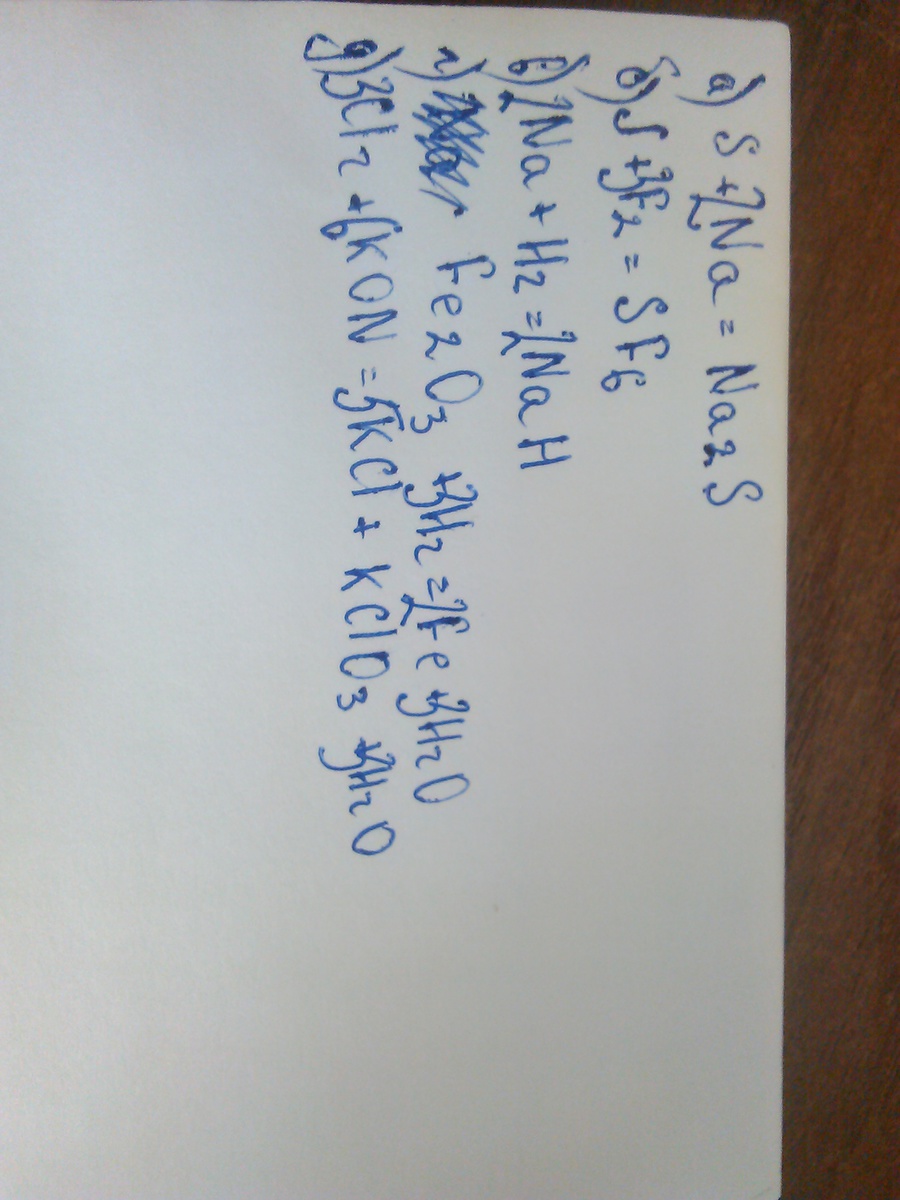 а) S + 2Na = Na2S
б) S + 3F2 = SF6
в) 2Na + H2 = 2NaH
г) Fe2O3 + 3H2 = 2Fe + 3H2O
д) 3Cl2 + 6KON = 5KCl + KClO3 + 3H2O